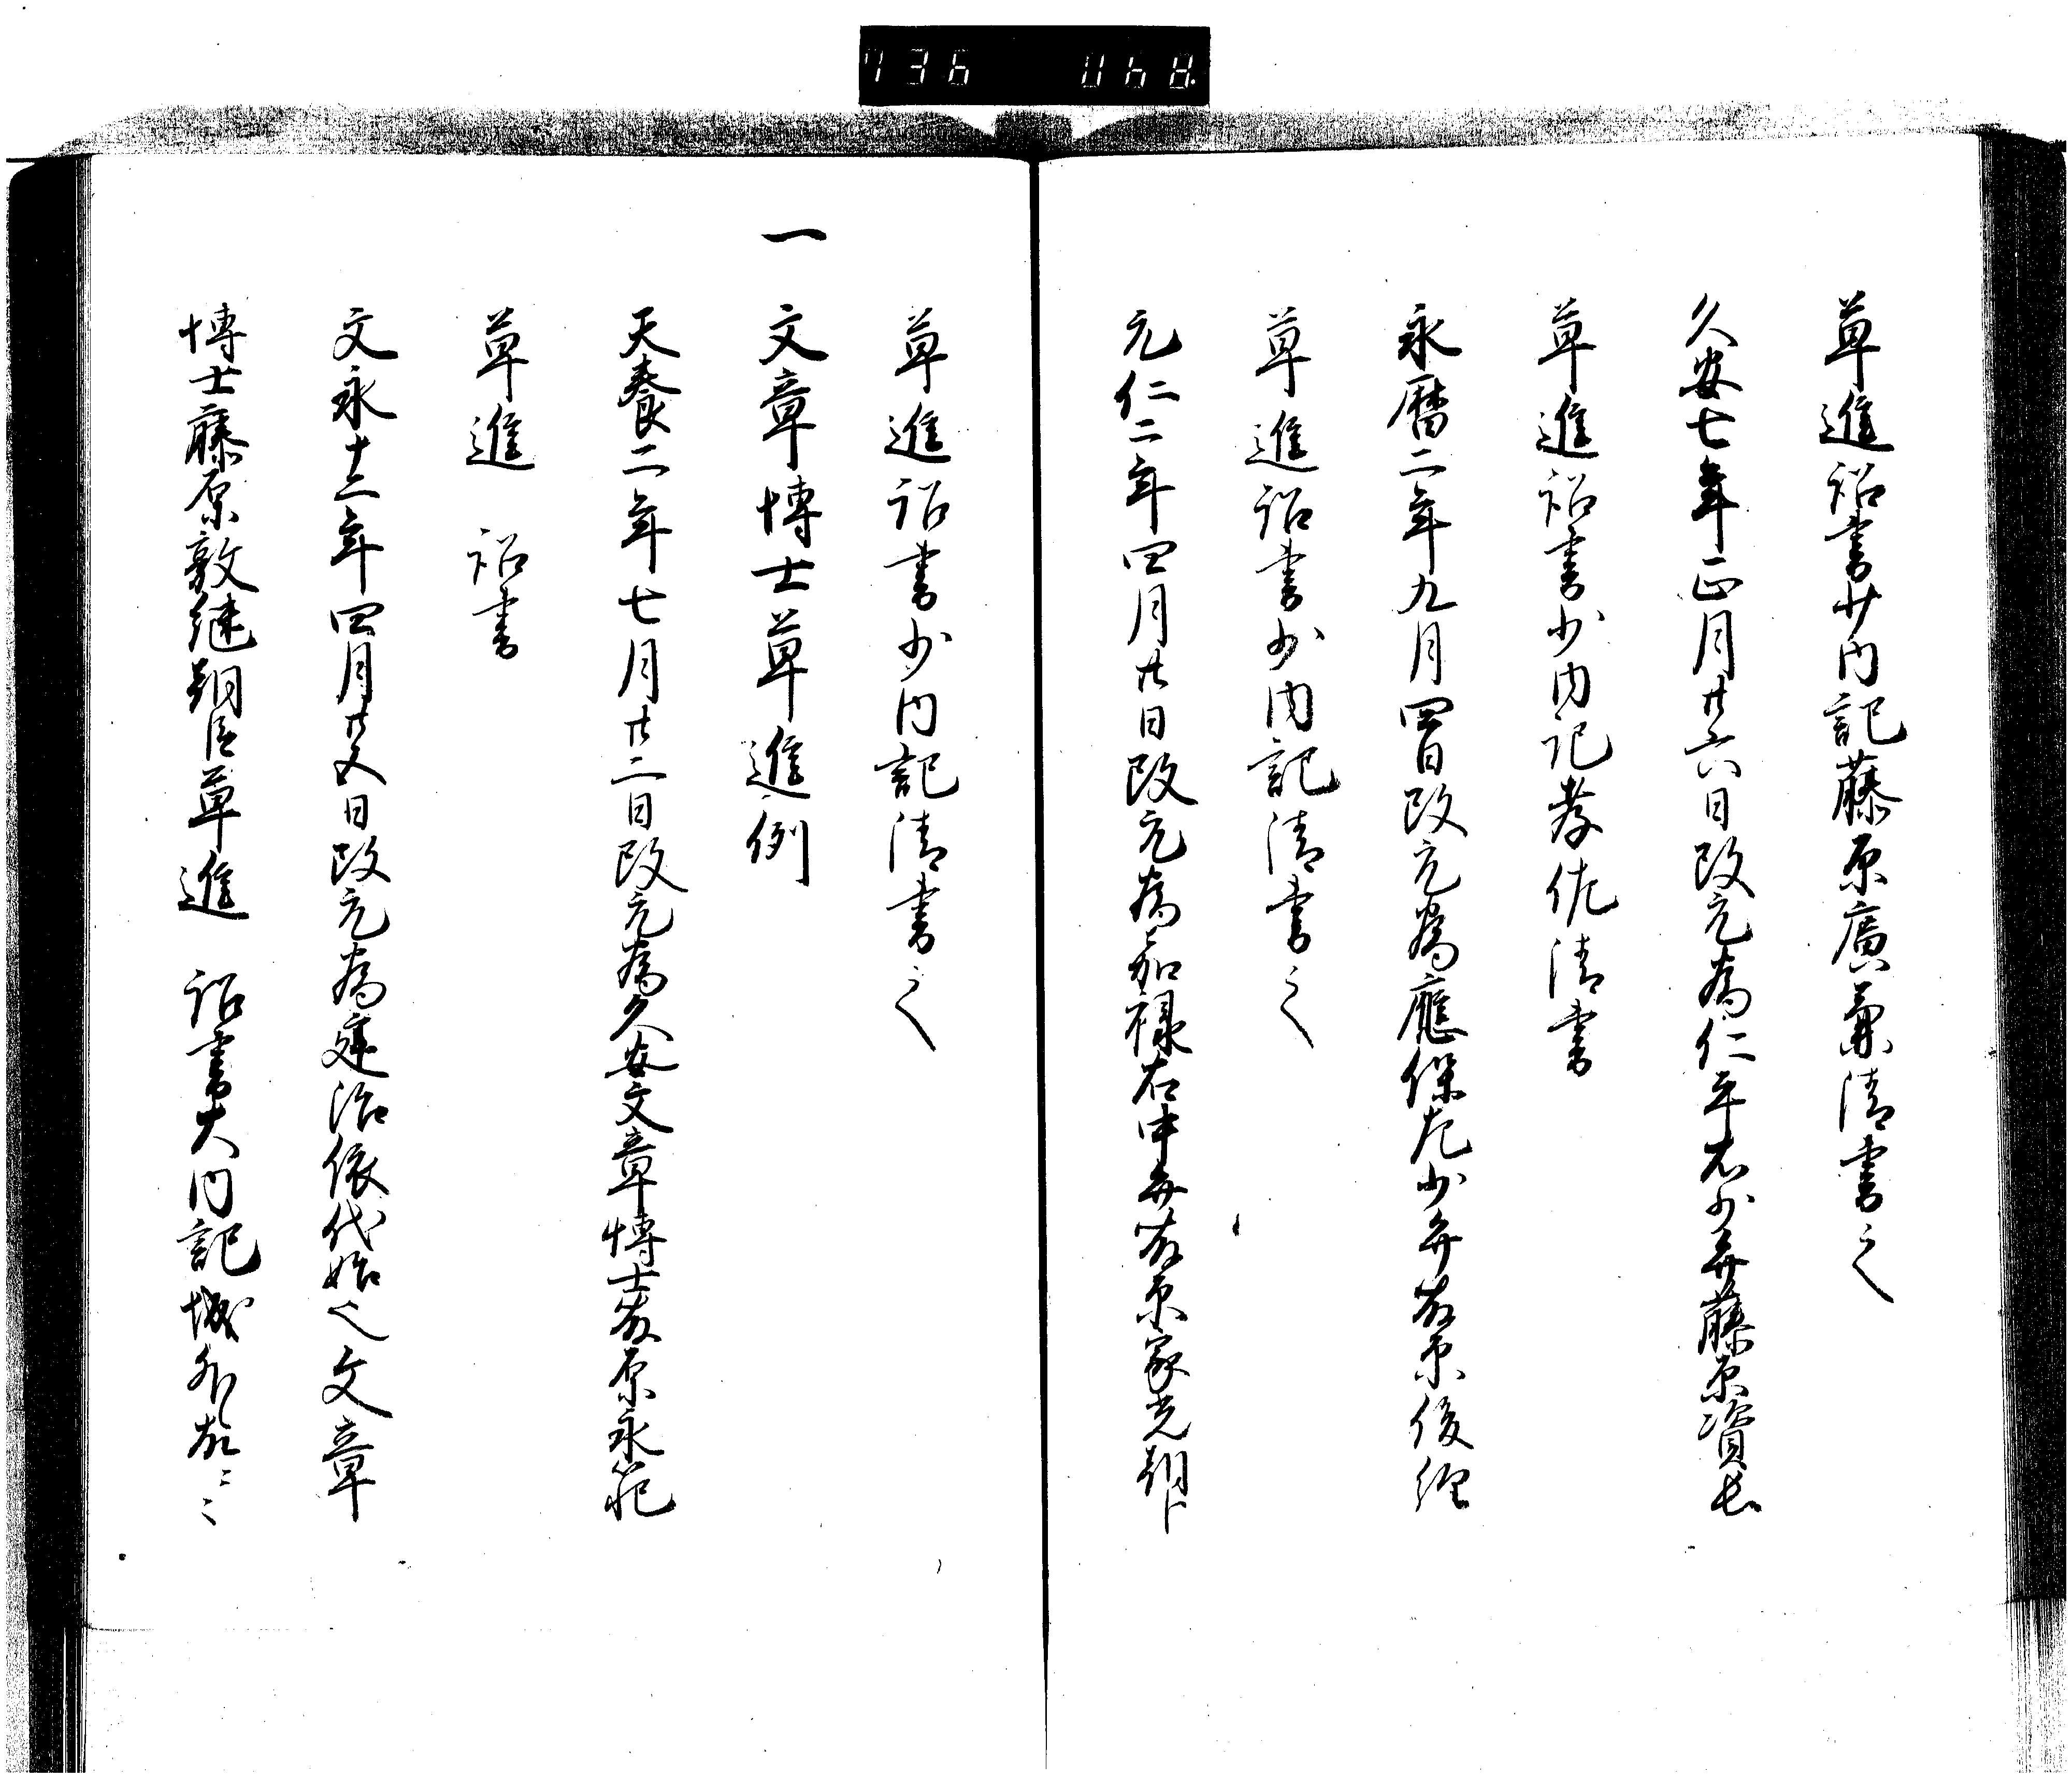 736 068
草進詔書少内記藤原廣兼清書之
久安七年正月廿六日改元為仁平右少弁藤原資長
草進詔書少内記孝佐清書
永暦二年九月四日改元為應保左少弁藤原俊経
草進詔書少内記清書之
元仁二年四月廿日改元為嘉禄右中弁藤原家光朝臣
草進詔書少内記清書之
一 文章博士草進例
天養二年七月廿二日改元為久安文章博士藤原永範
草進 詔書
文永十二年四月廿五日改元為建治依代始也文章
博士藤原敦継朝臣草進 詔書大内記城外故云々